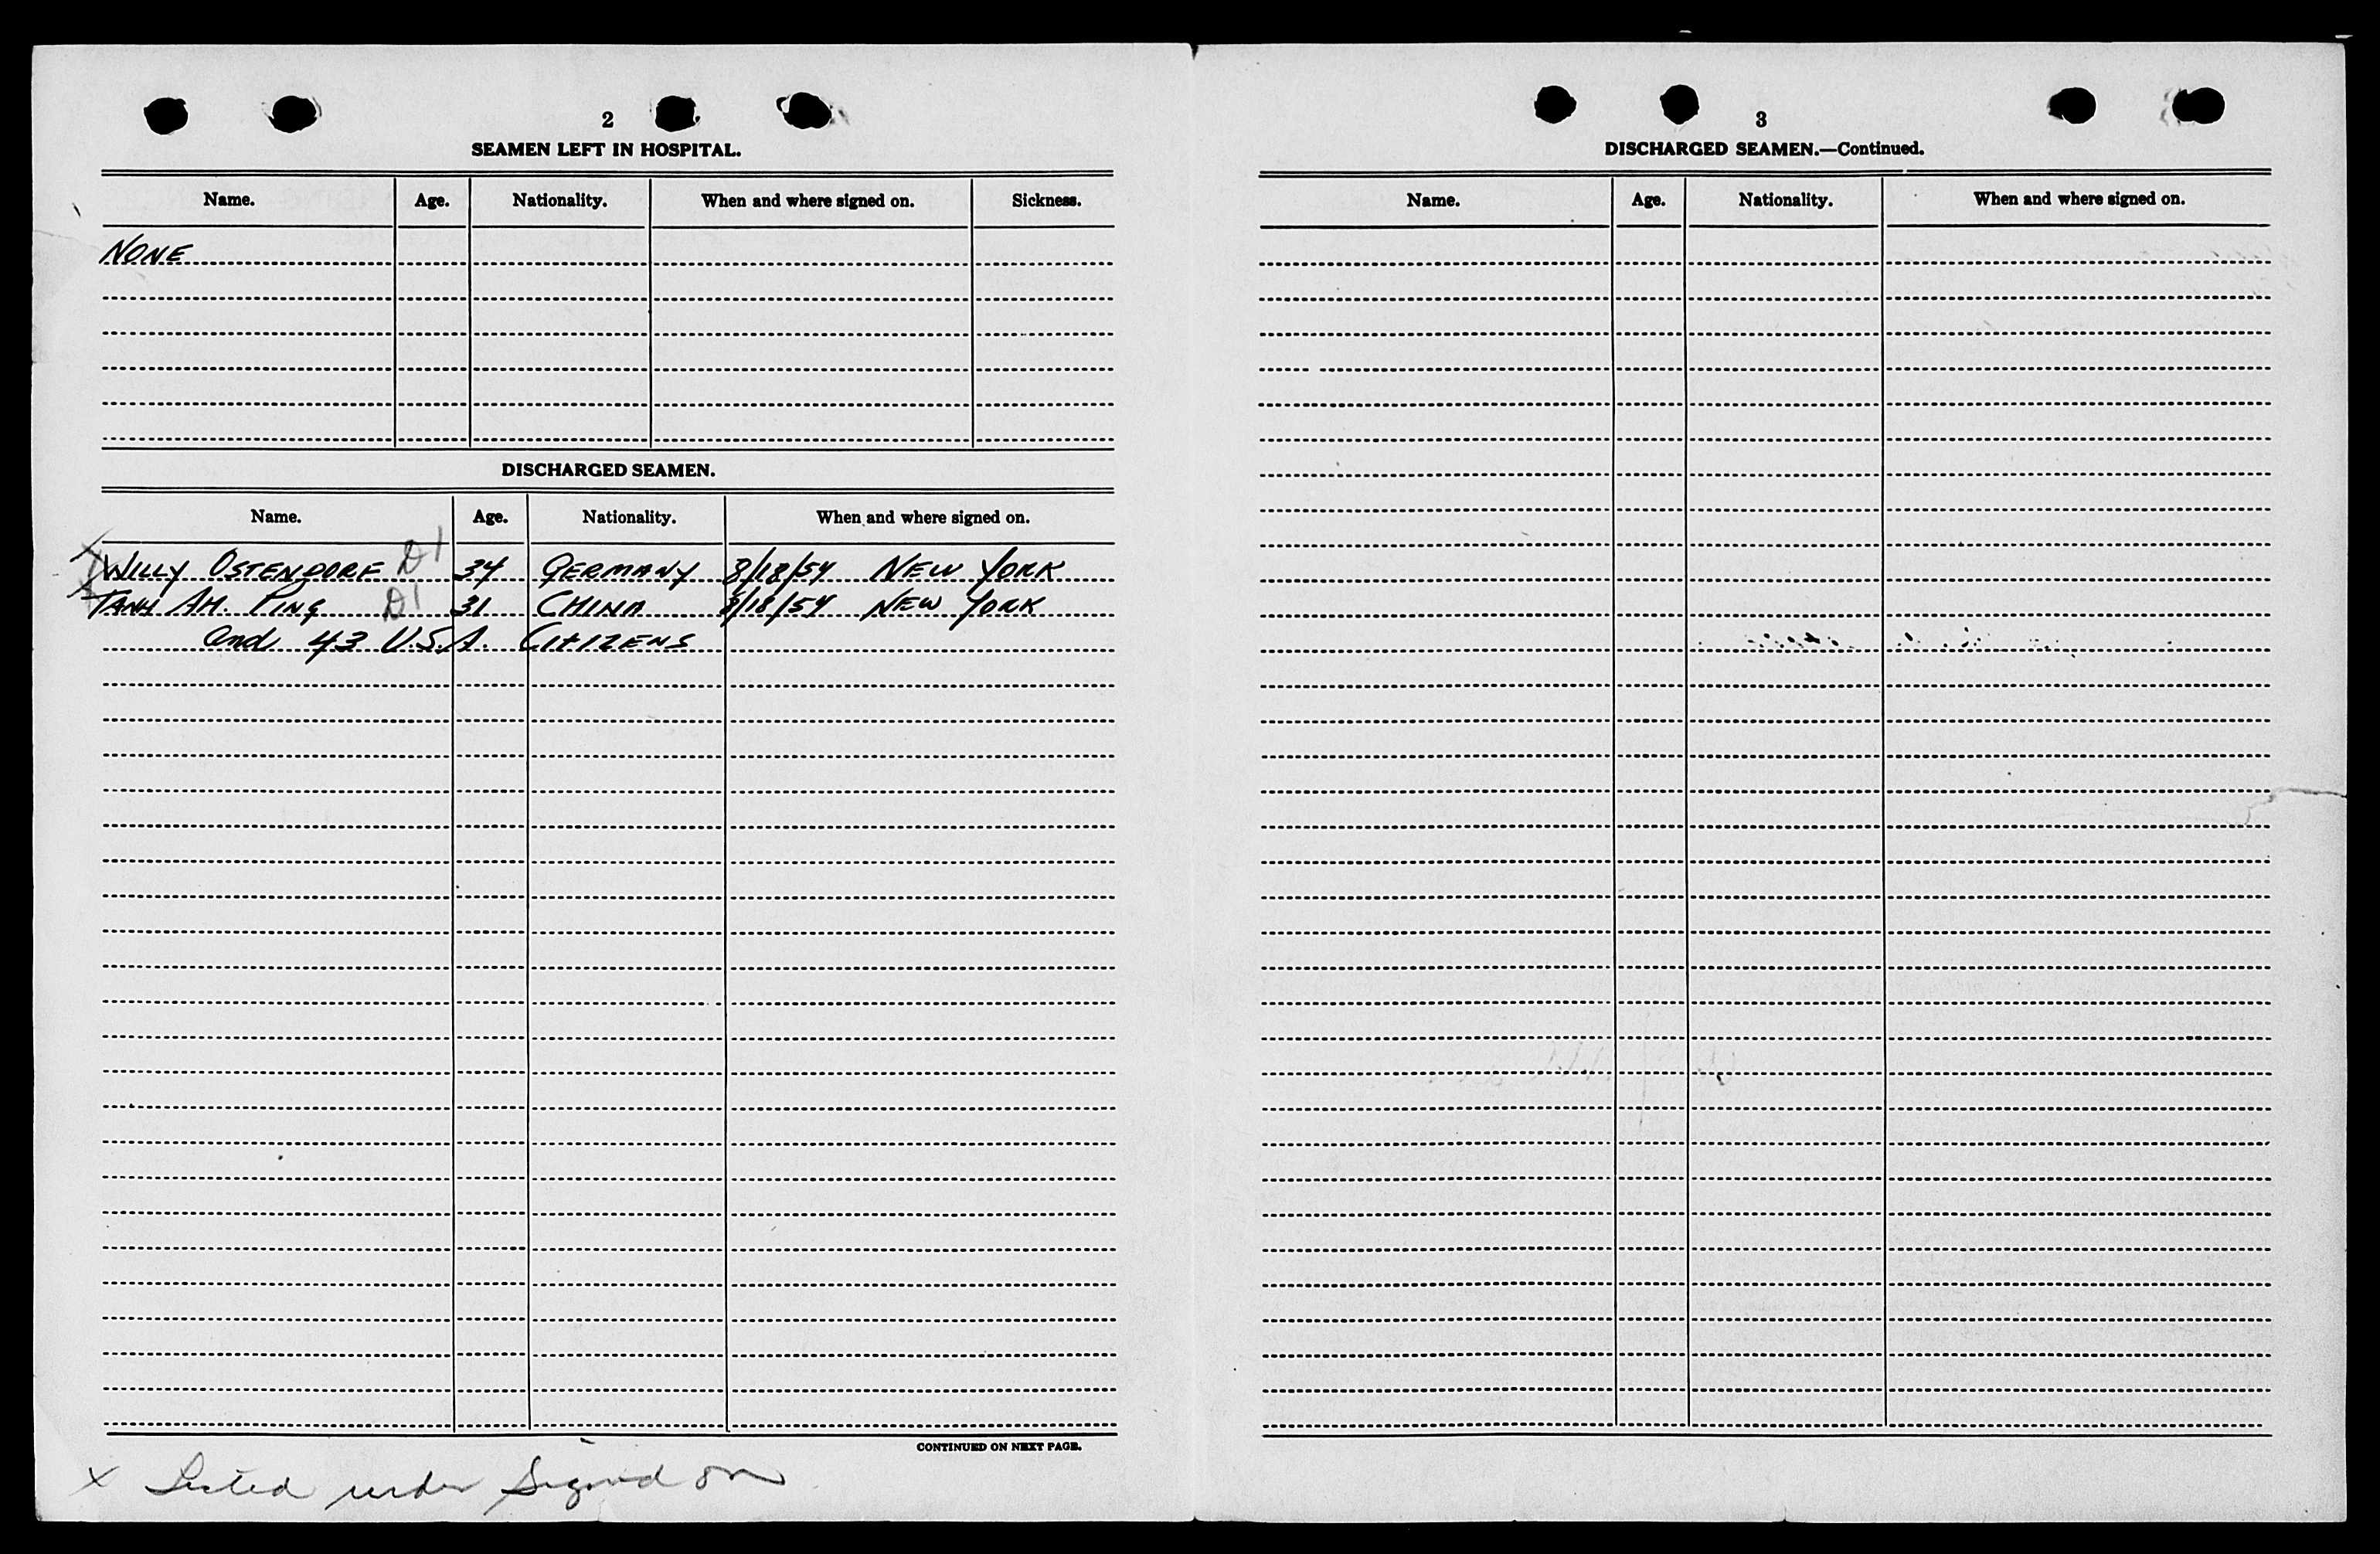 2
SEAMEN LEFT IN HOSPITAL.
Name. Age. Nationality. When and where signed on. Sickness.
NONE
DISCHARGED SEAMEN.
Name. Age. Nationality. When and where signed on.
X WILLY OSTENDORF D1 34 GERMANY 8/18/54 NEW YORK
X TANH AH. PING D1 31 CHINA 8/18/54 NEW YORK
and 43 U.S.A. CITIZENS
CONTINUED ON NEXT PAGE.
X Listed under Signed on
3
DISCHARGED SEAMEN.—Continued.
Name. Age. Nationality. When and where signed on.